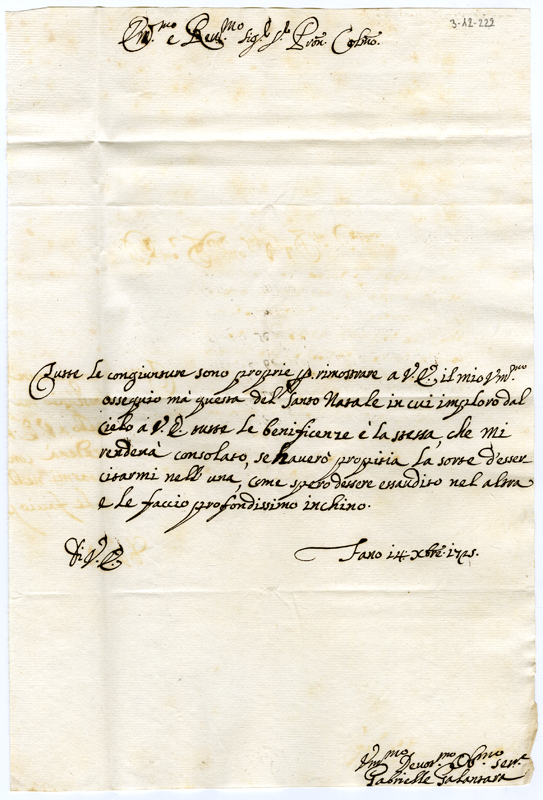 3-12-222
Em.mo e Rev.mo Sig.r S.r Pron. Colmo.
Tutte le congiunture sono proprie p. rimostrare a V.E. il mio Um.mo
ossequio mà questa del Santo Natale in cui imploro dal
Cielo à V.E. tutte le beneficenze è la stessa, che mi
renderà consolato, se haverò propitia la sorte d'esser
citarmi nell' una, come spero d'essere essaudito nel altra
e le faccio profondissimo inchino.
Di V.E. Fano 14 Xbre 1725.
Um.mo Devot.mo Ob.mo ser.e
Gabrielle Galantara